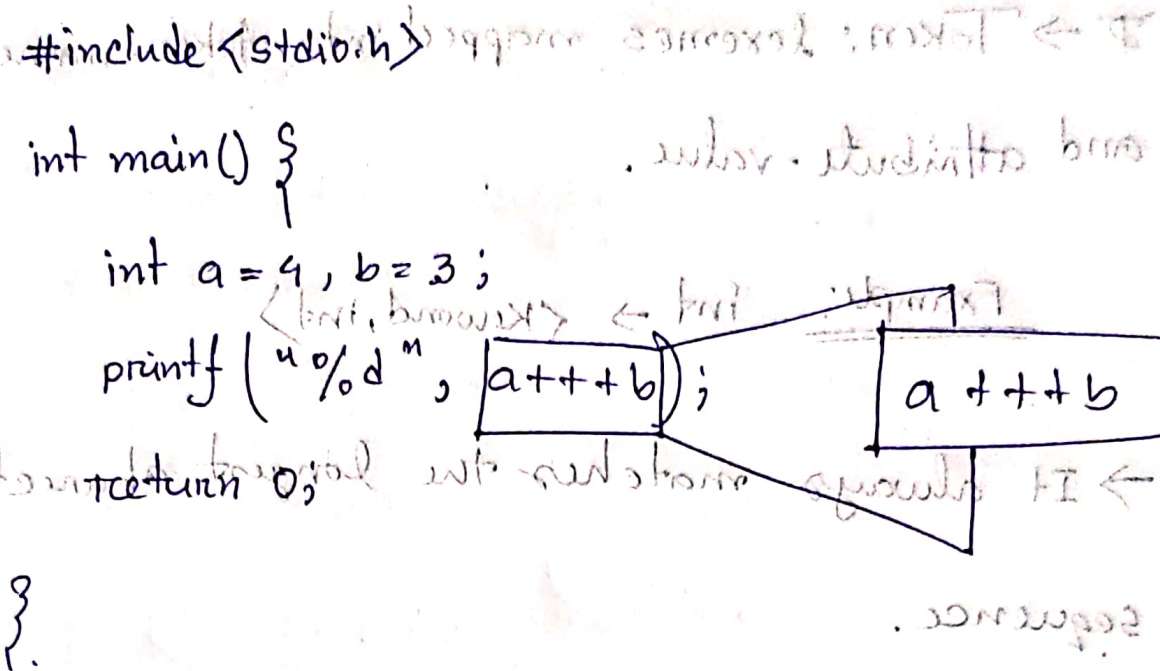 #include <stdio.h>
int main() {
int a = 4, b = 3;
printf ("%d", a+++b);
a +++ b
return 0;
}.